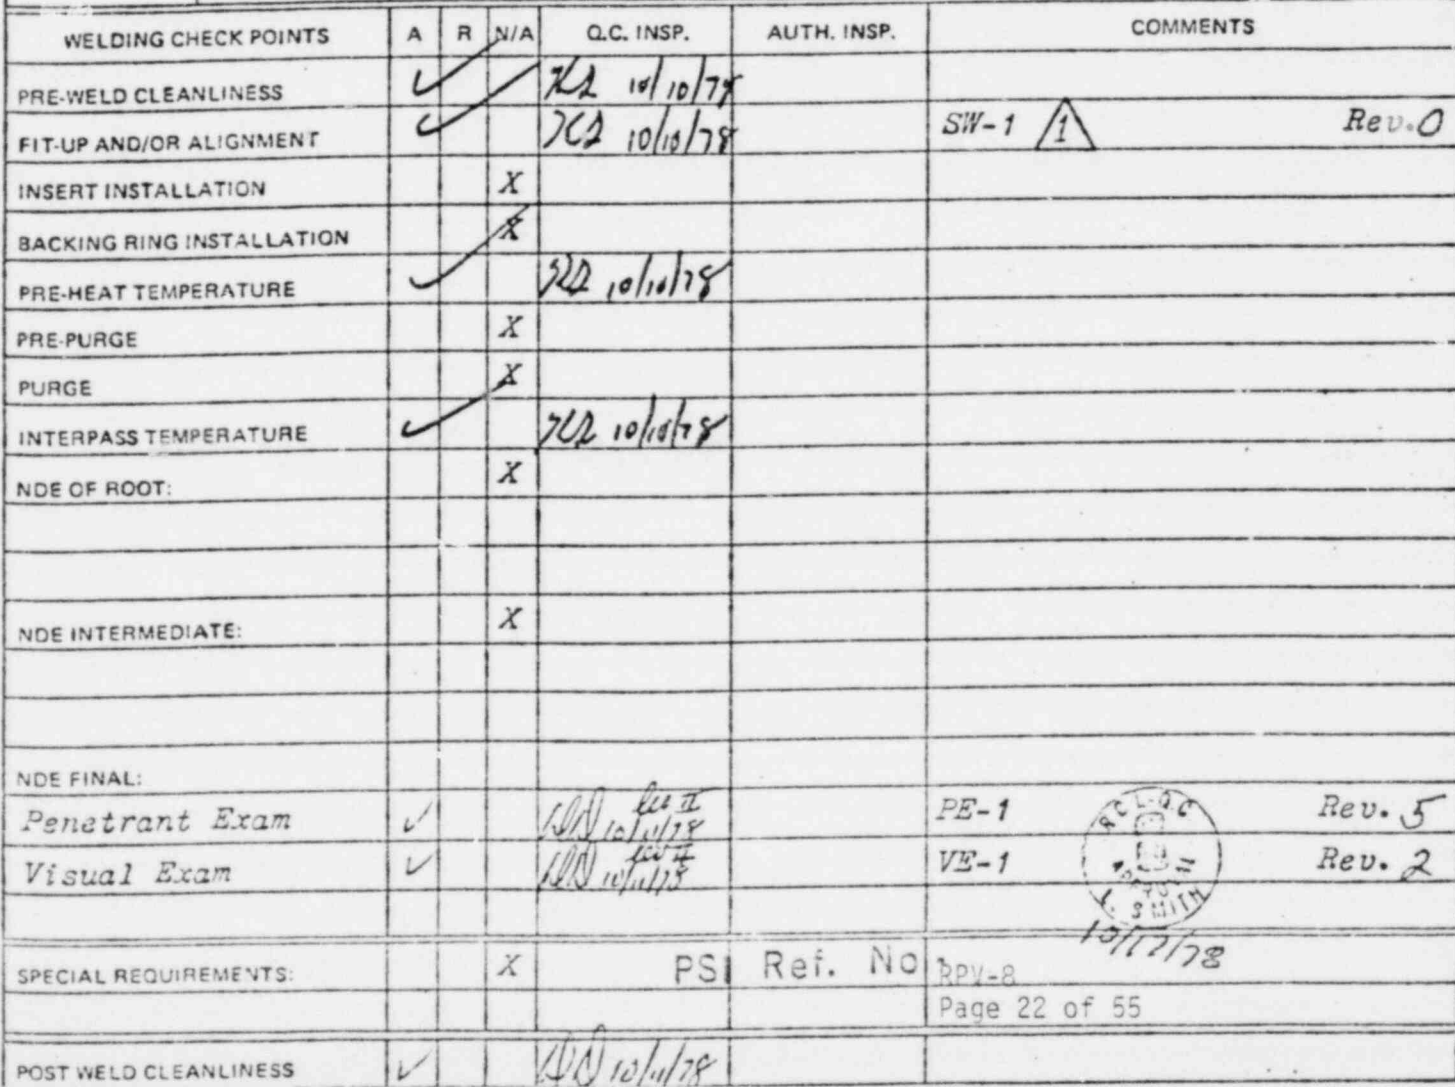 WELDING CHECK POINTS A R N/A Q.C. INSP. AUTH. INSP. COMMENTS
PRE-WELD CLEANLINESS ✓ 10/10/78
FIT-UP AND/OR ALIGNMENT ✓ 10/10/78 SW-1 1 Rev. 0
INSERT INSTALLATION X
BACKING RING INSTALLATION X
PRE-HEAT TEMPERATURE ✓ 10/10/78
PRE-PURGE X
PURGE X
INTERPASS TEMPERATURE ✓ 10/10/78
NDE OF ROOT: X
NDE INTERMEDIATE: X
NDE FINAL:
Penetrant Exam ✓ 10/11/78 Lev II PE-1 Rev. 5
Visual Exam ✓ 10/11/78 Lev II VE-1 Rev. 2
RCL-QC
APPROVAL
L. SMITH
10/17/78
SPECIAL REQUIREMENTS: X PSI Ref. No. RPV-8
Page 22 of 55
POST WELD CLEANLINESS ✓ 10/11/78